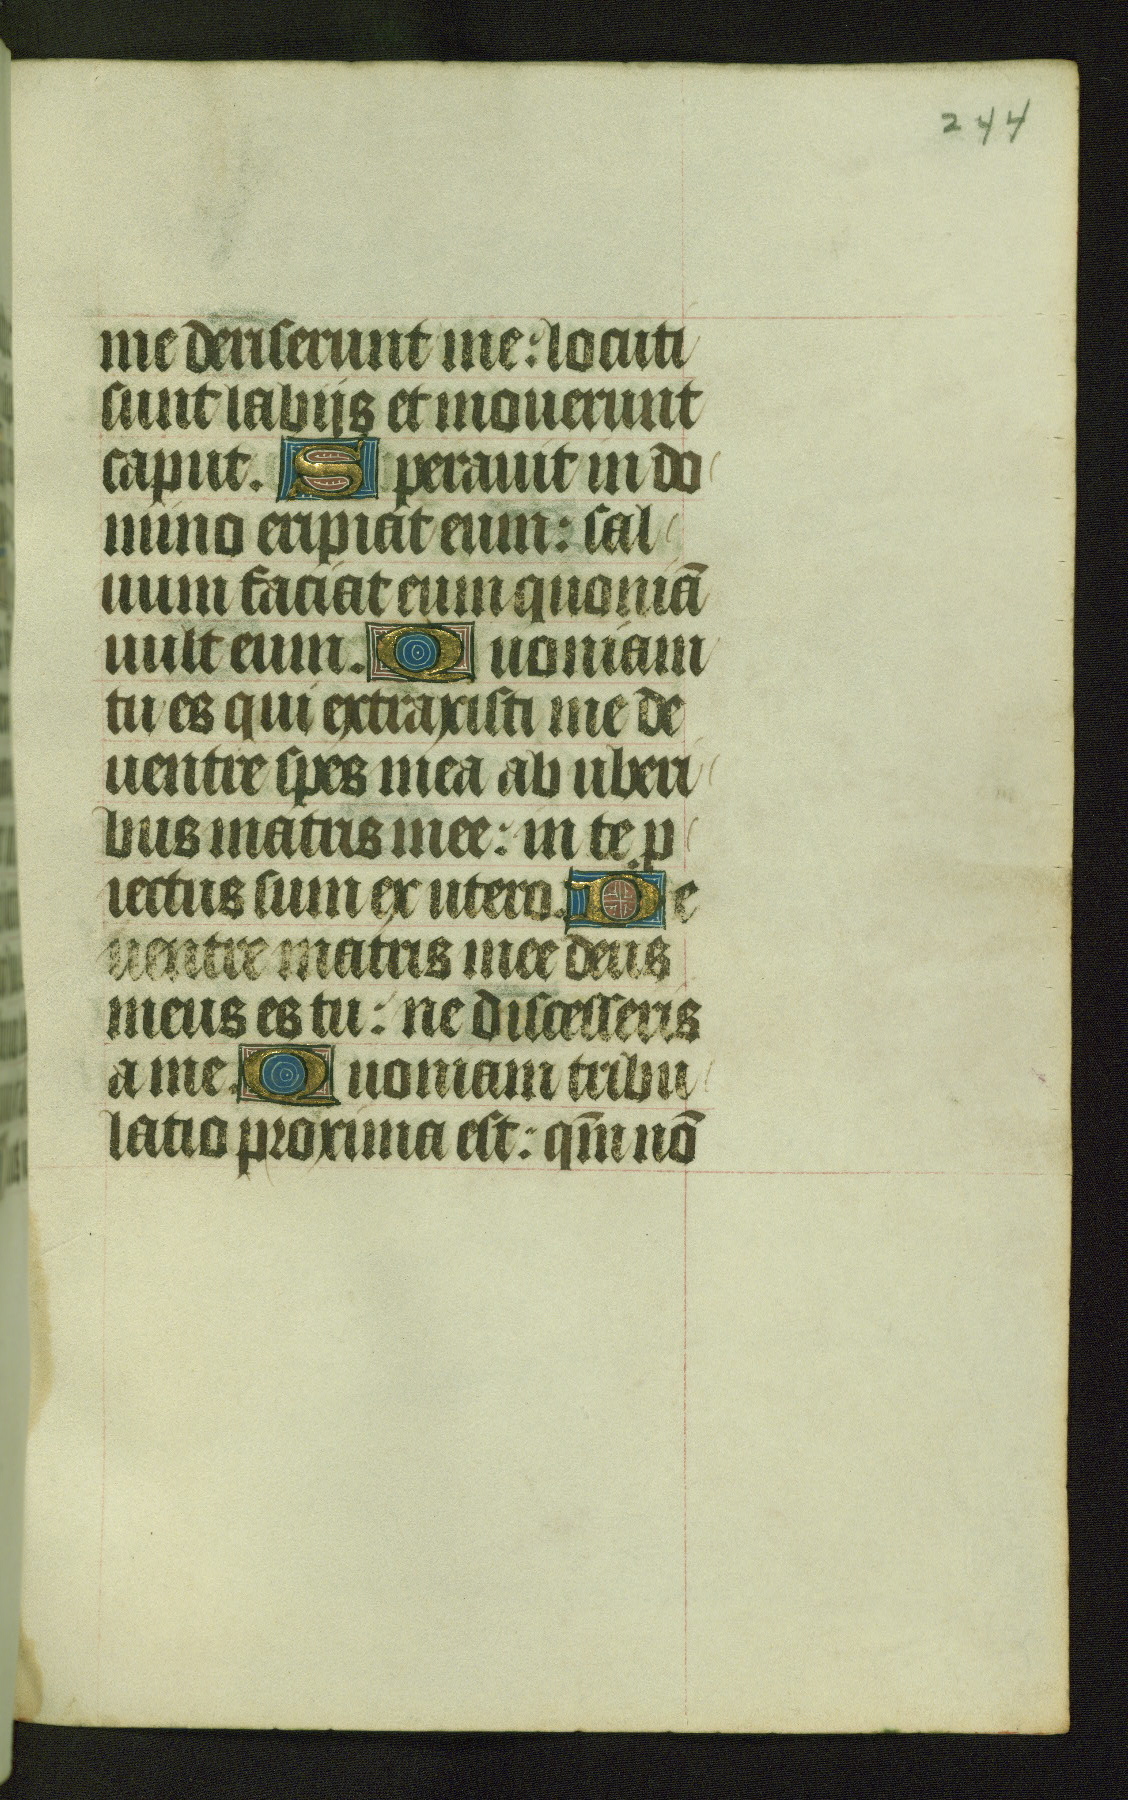 244
me deriserunt me: locuti
sunt labijs et mouerunt
caput. Sperauit in do
mino eripiat eum: sal
uum faciat eum quoniā
uult eum. Quoniam
tu es qui extraxisti me de
uentre spes mea ab uberi
bus matris mee: in te p
iectus sum ex utero. De
uentre matris mee deus
meus es tu: ne discesseris
a me. Quoniam tribu
latio proxima est: qm̄ nō